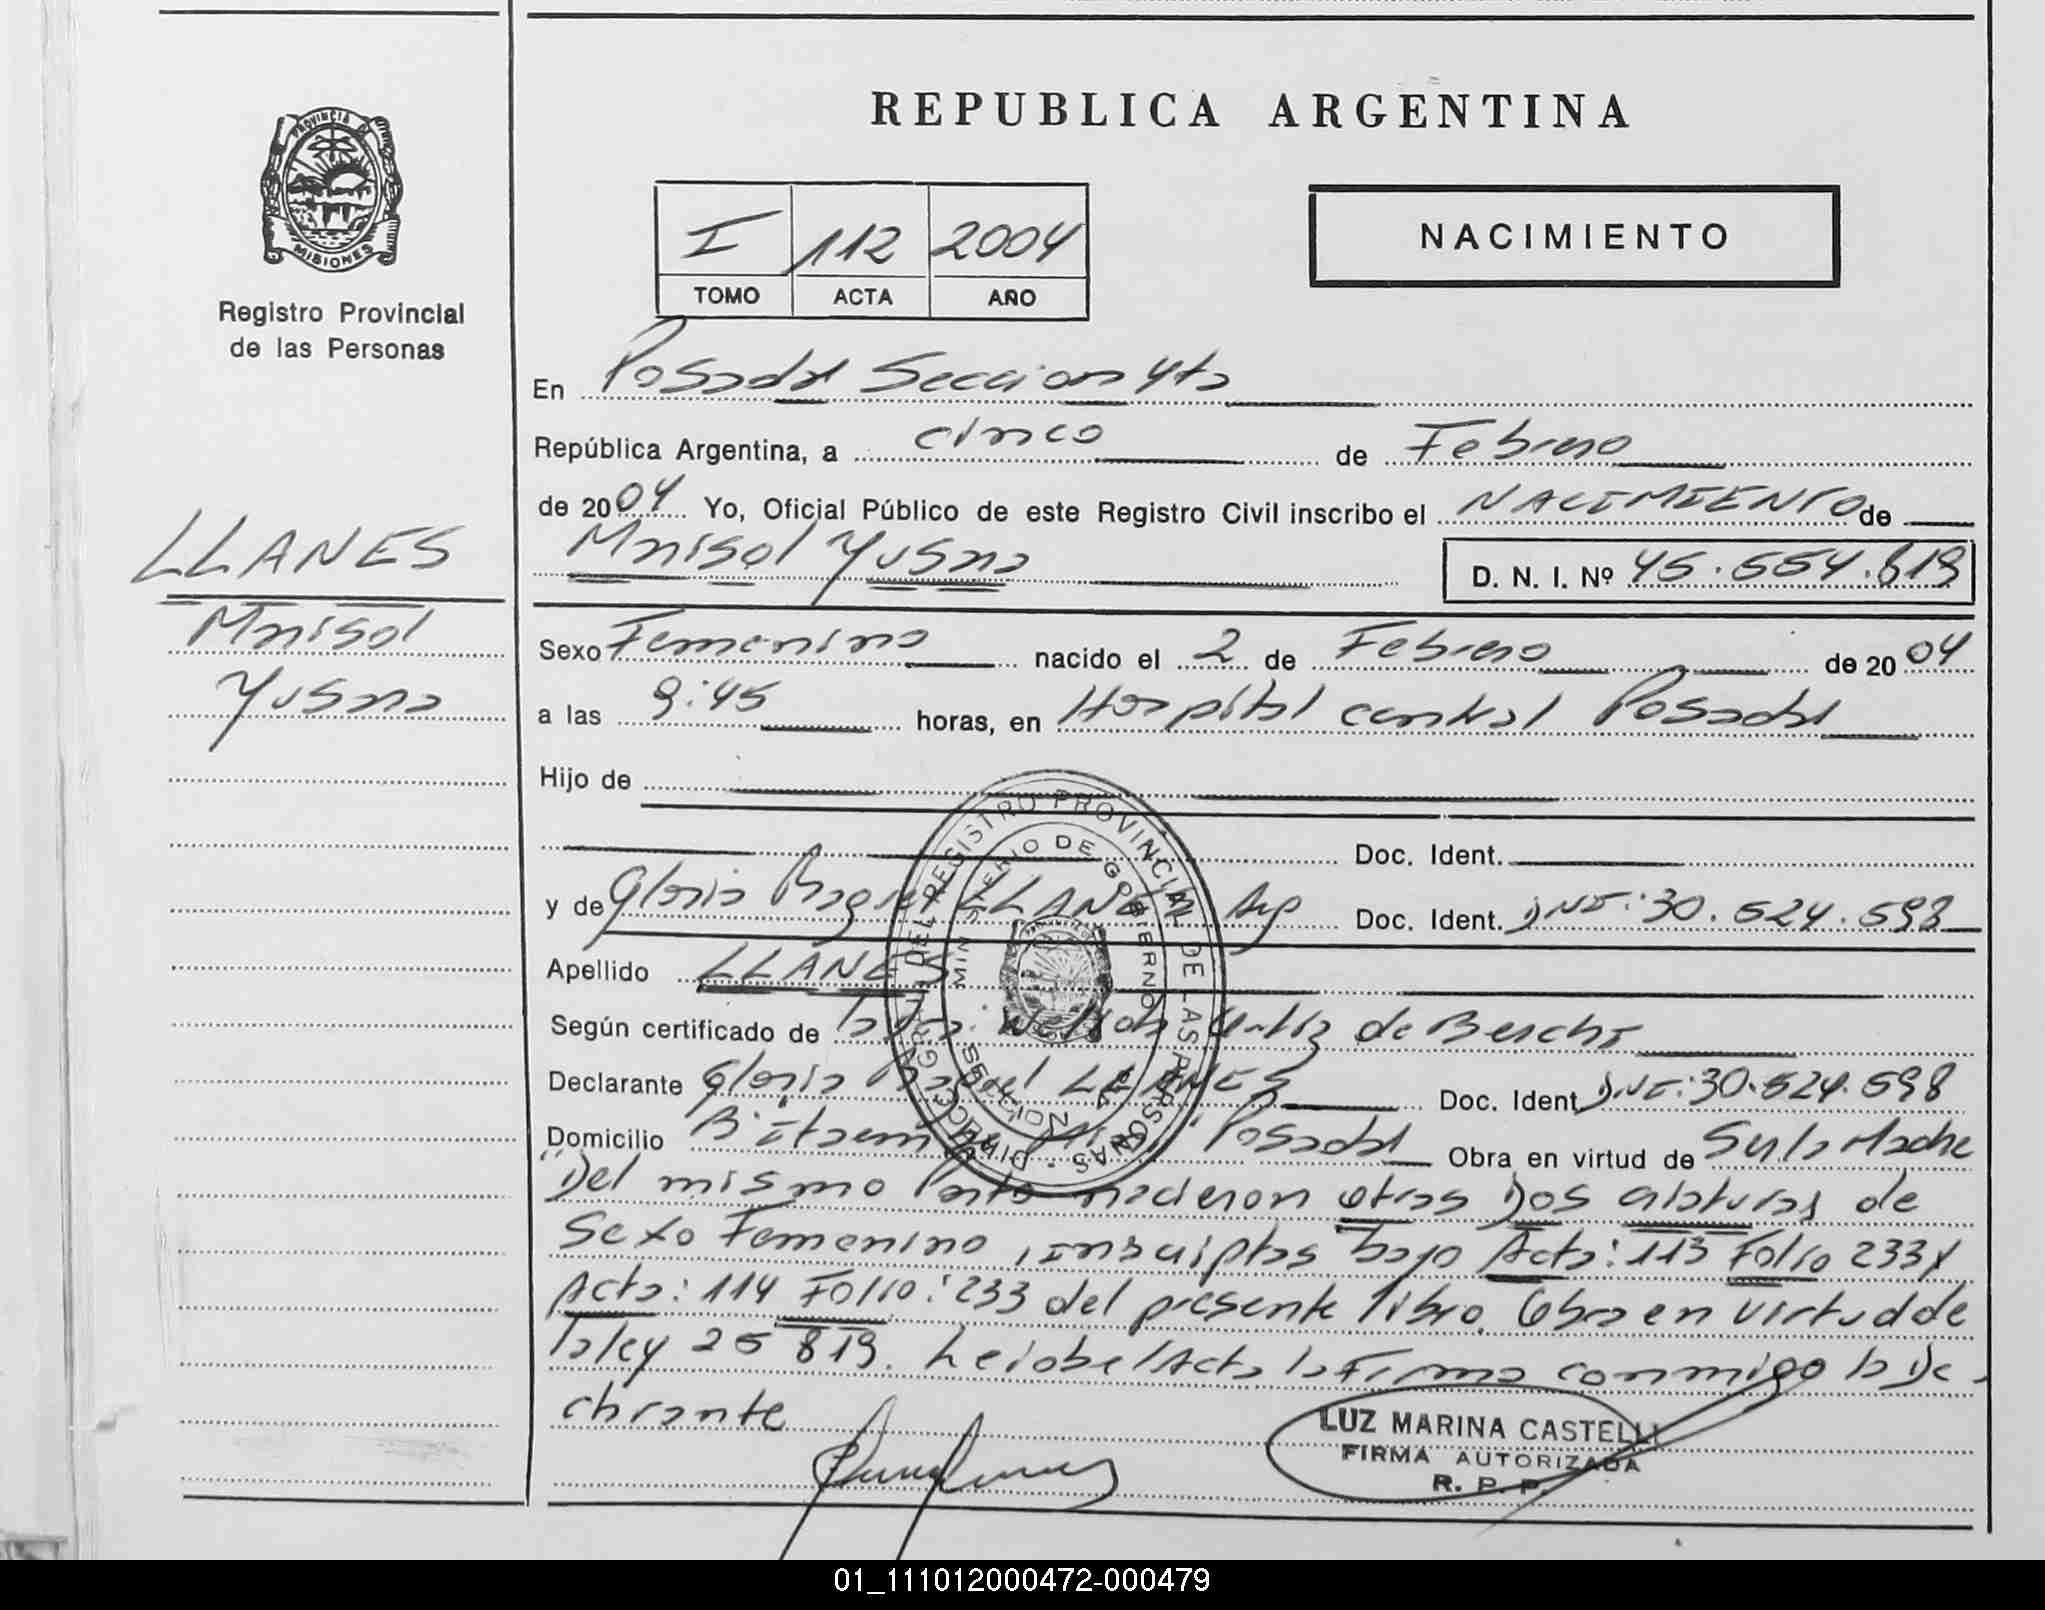 REPUBLICA ARGENTINA
PROVINCIA DE
MISIONES
Registro Provincial
de las Personas
I 112 2004
TOMO ACTA AÑO
NACIMIENTO
En Posadas Seccion 4ta
República Argentina, a cinco de Febrero
de 2004 Yo, Oficial Público de este Registro Civil inscribo el NACIMIENTO de
Marisol Yusara D. N. I. Nº 45.554.819
LLANES
Marisol
Yusara
Sexo Femenino nacido el 2 de Febrero de 2004
a las 9:45 horas, en Hospital central Posadas
Hijo de
Doc. Ident.
y de Gloria Raquel LLANES Arg Doc. Ident. DNI: 30.524.598
Apellido LLANES
Según certificado de la de Berchi
Declarante Gloria Raquel LLANES Doc. Ident DNI: 30.524.598
Domicilio Bº Itaembé Posadas Obra en virtud de Ser la Madre
"Del mismo Parto nacieron otras Dos criaturas de
Sexo Femenino, inscriptas bajo Acta: 113 Folio 233 y
Acta: 114 Folio: 233 del presente libro. Obra en virtud de
la ley 25 819. Leida el Acta la Firma conmigo la De-
clarante
DIRECC. GRAL. DEL REGISTRO PROVINCIAL DE LAS PERSONAS
MINISTERIO DE GOBIERNO
MISIONES
LUZ MARINA CASTELLI
FIRMA AUTORIZADA
R. P. P.
01_111012000472-000479